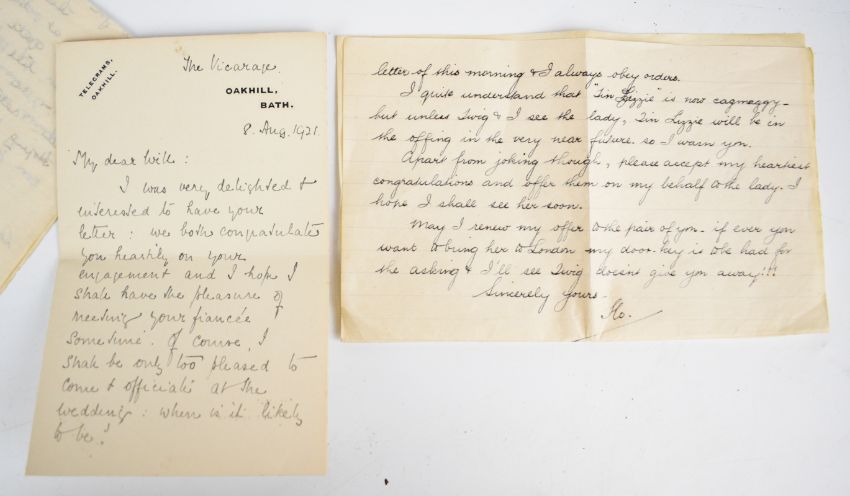 TELEGRAMS,
OAKHILL.
The Vicarage.
OAKHILL,
BATH.
8. Aug. 1921.
My dear Will :
I was very delighted &
interested to have your
letter : we both congratulate
you heartily on your
engagement and I hope I
shall have the pleasure of
meeting your fiancée
sometime. Of course, I
shall be only too pleased to
come & officiate at the
wedding : when is it likely
to be?
letter of this morning & I always obey orders.
I quite understand that "Tin Lizzie" is now cagmeggy -
but unless Twig & I see the lady, Tin Lizzie will be in
the offing in the very near future, so I warn you.
Apart from joking though, please accept my heartiest
congratulations and offer them on my behalf to the lady. I
hope I shall see her soon.
May I renew my offer to the pair of you - if ever you
want to bring her to London my door-key is to be had for
the asking & I'll see Twig doesn't give you away!!!
Sincerely yours.